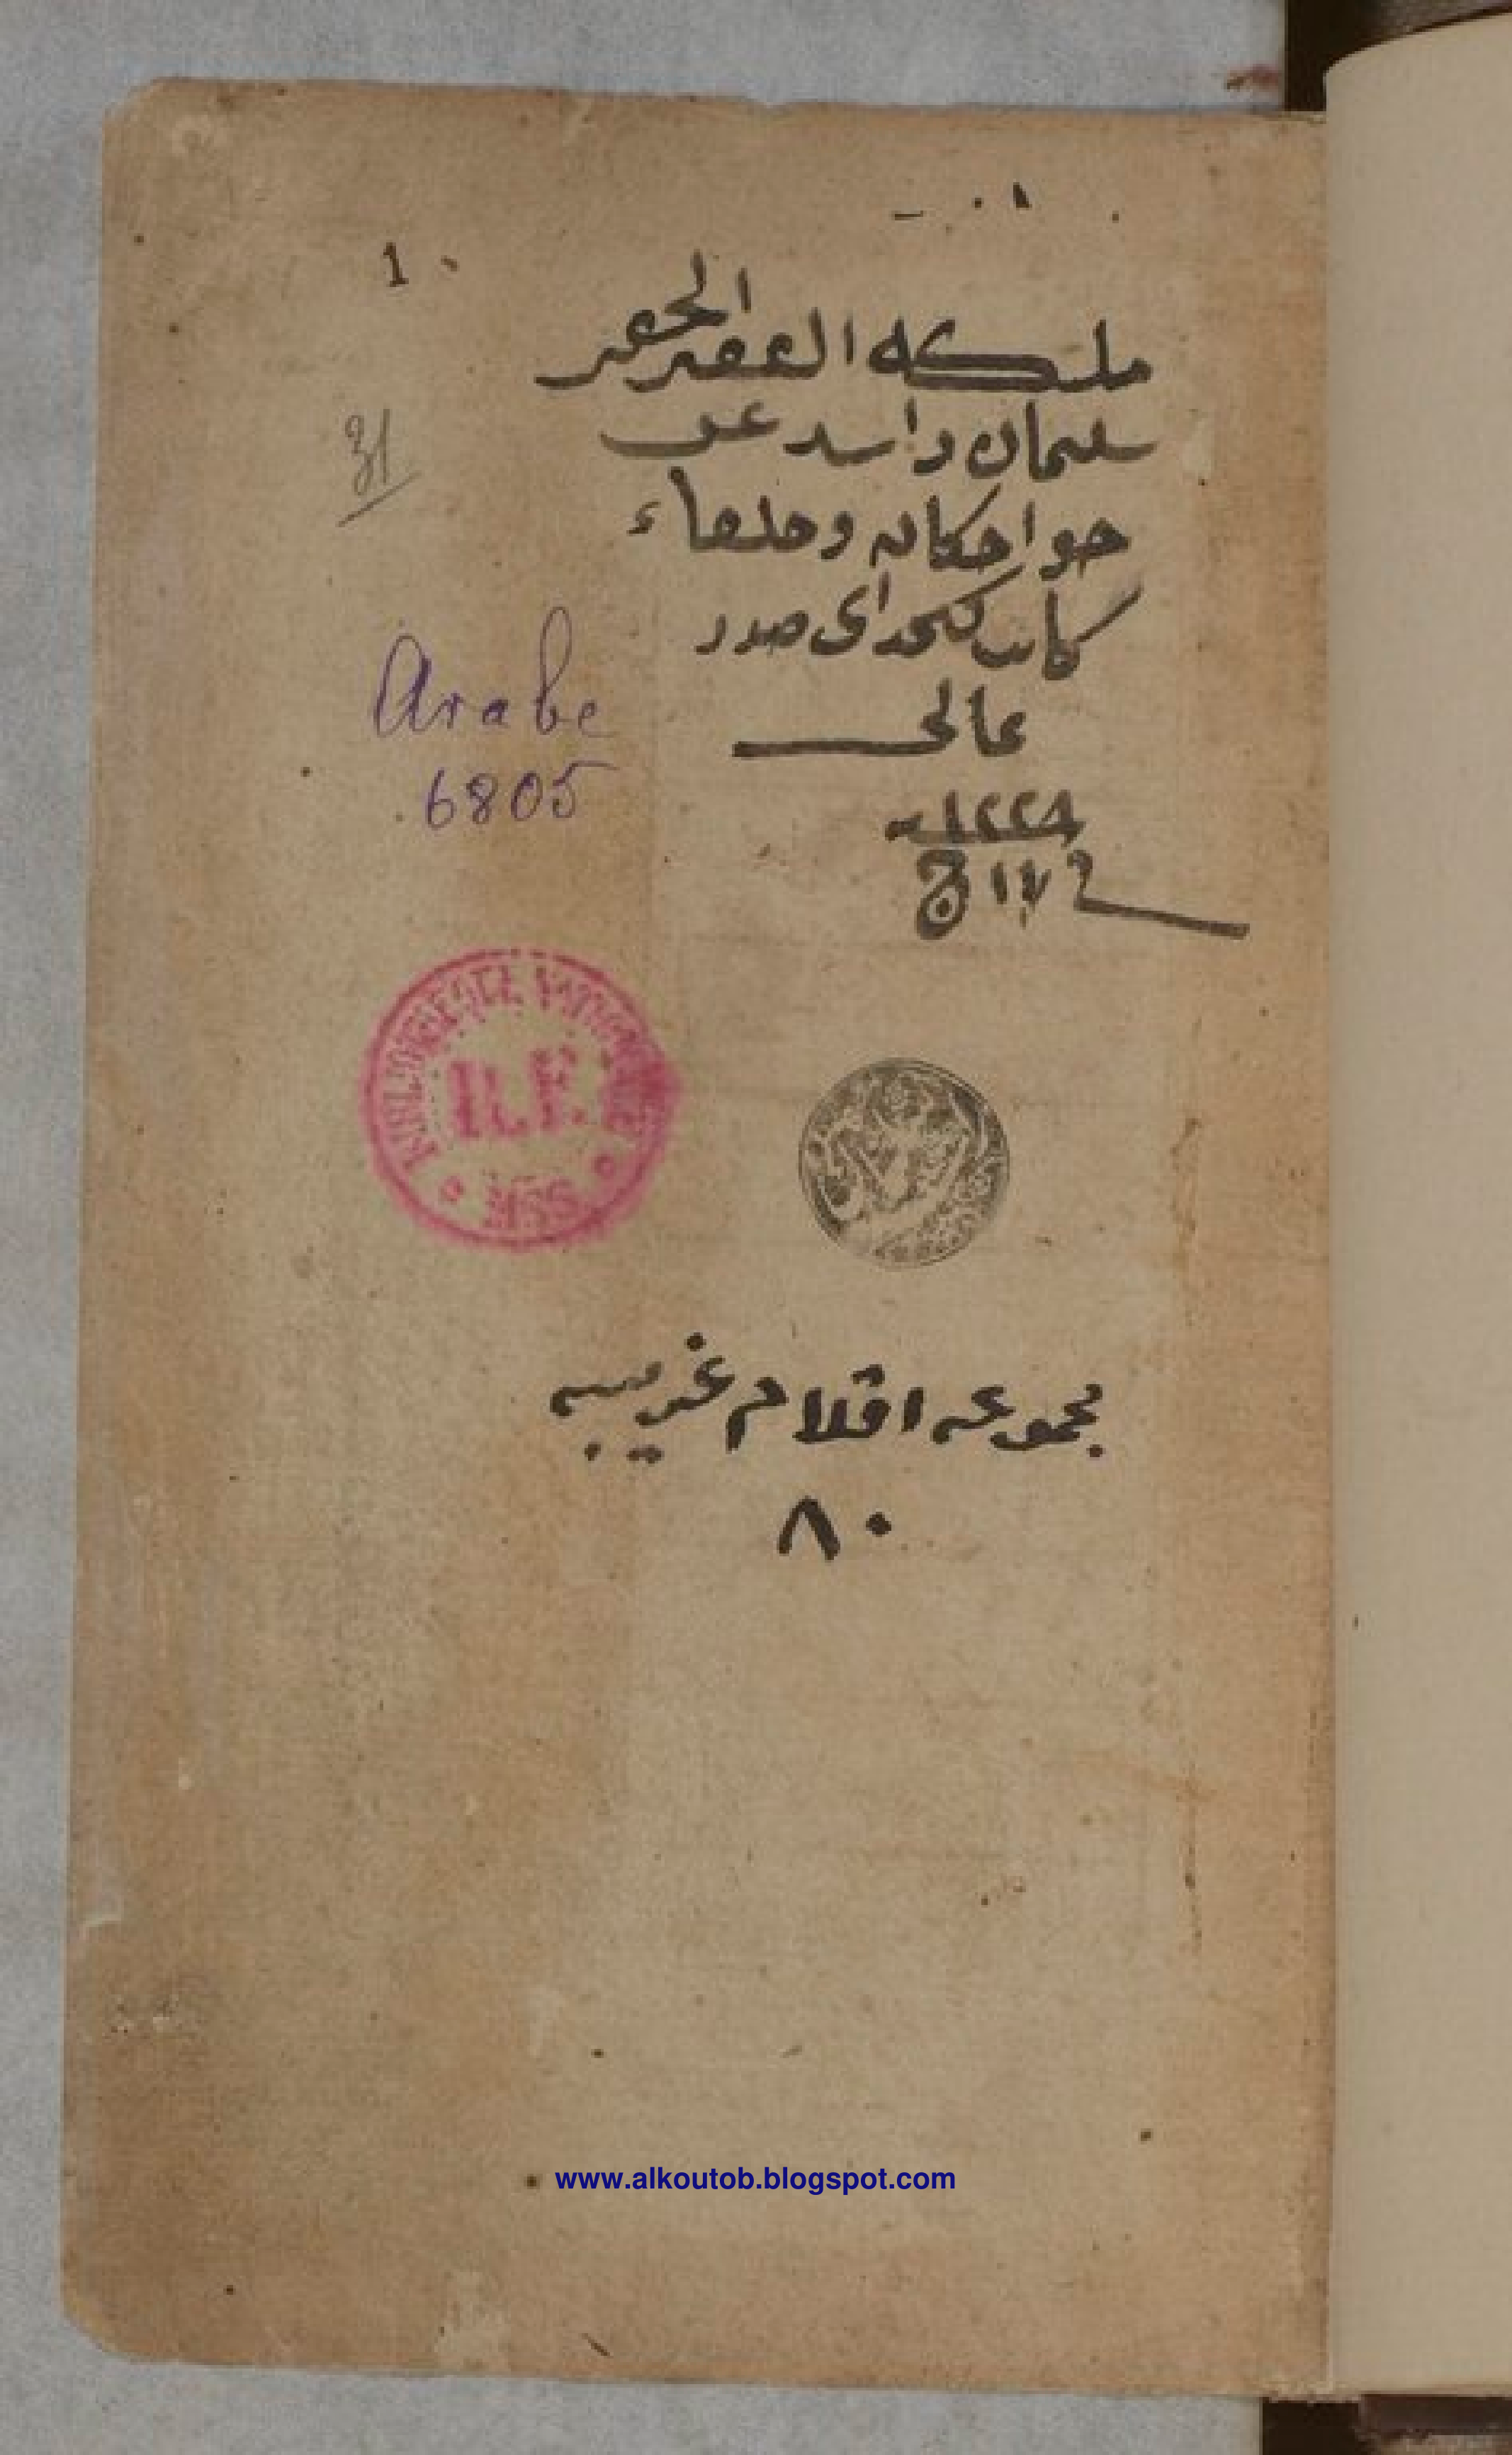 1
ملكه الفقير الحقير
سليمان راشد عن
خواجكان وخلفاء
كاتب كتخداى صدر
عالى
١٢٢٨
Arabe
6805
BIBLIOTHÈQUE NATIONALE
R.F.
MSS
مجموعه اقلام غريبه
٨٠
www.alkoutob.blogspot.com